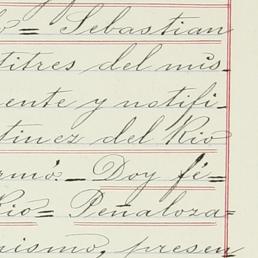 o= Sebastian
titres del mis-
ente y notifi-
tinez del Rio
rmó.- Doy fé=
Rio= Peñaloza=
nismo, presen